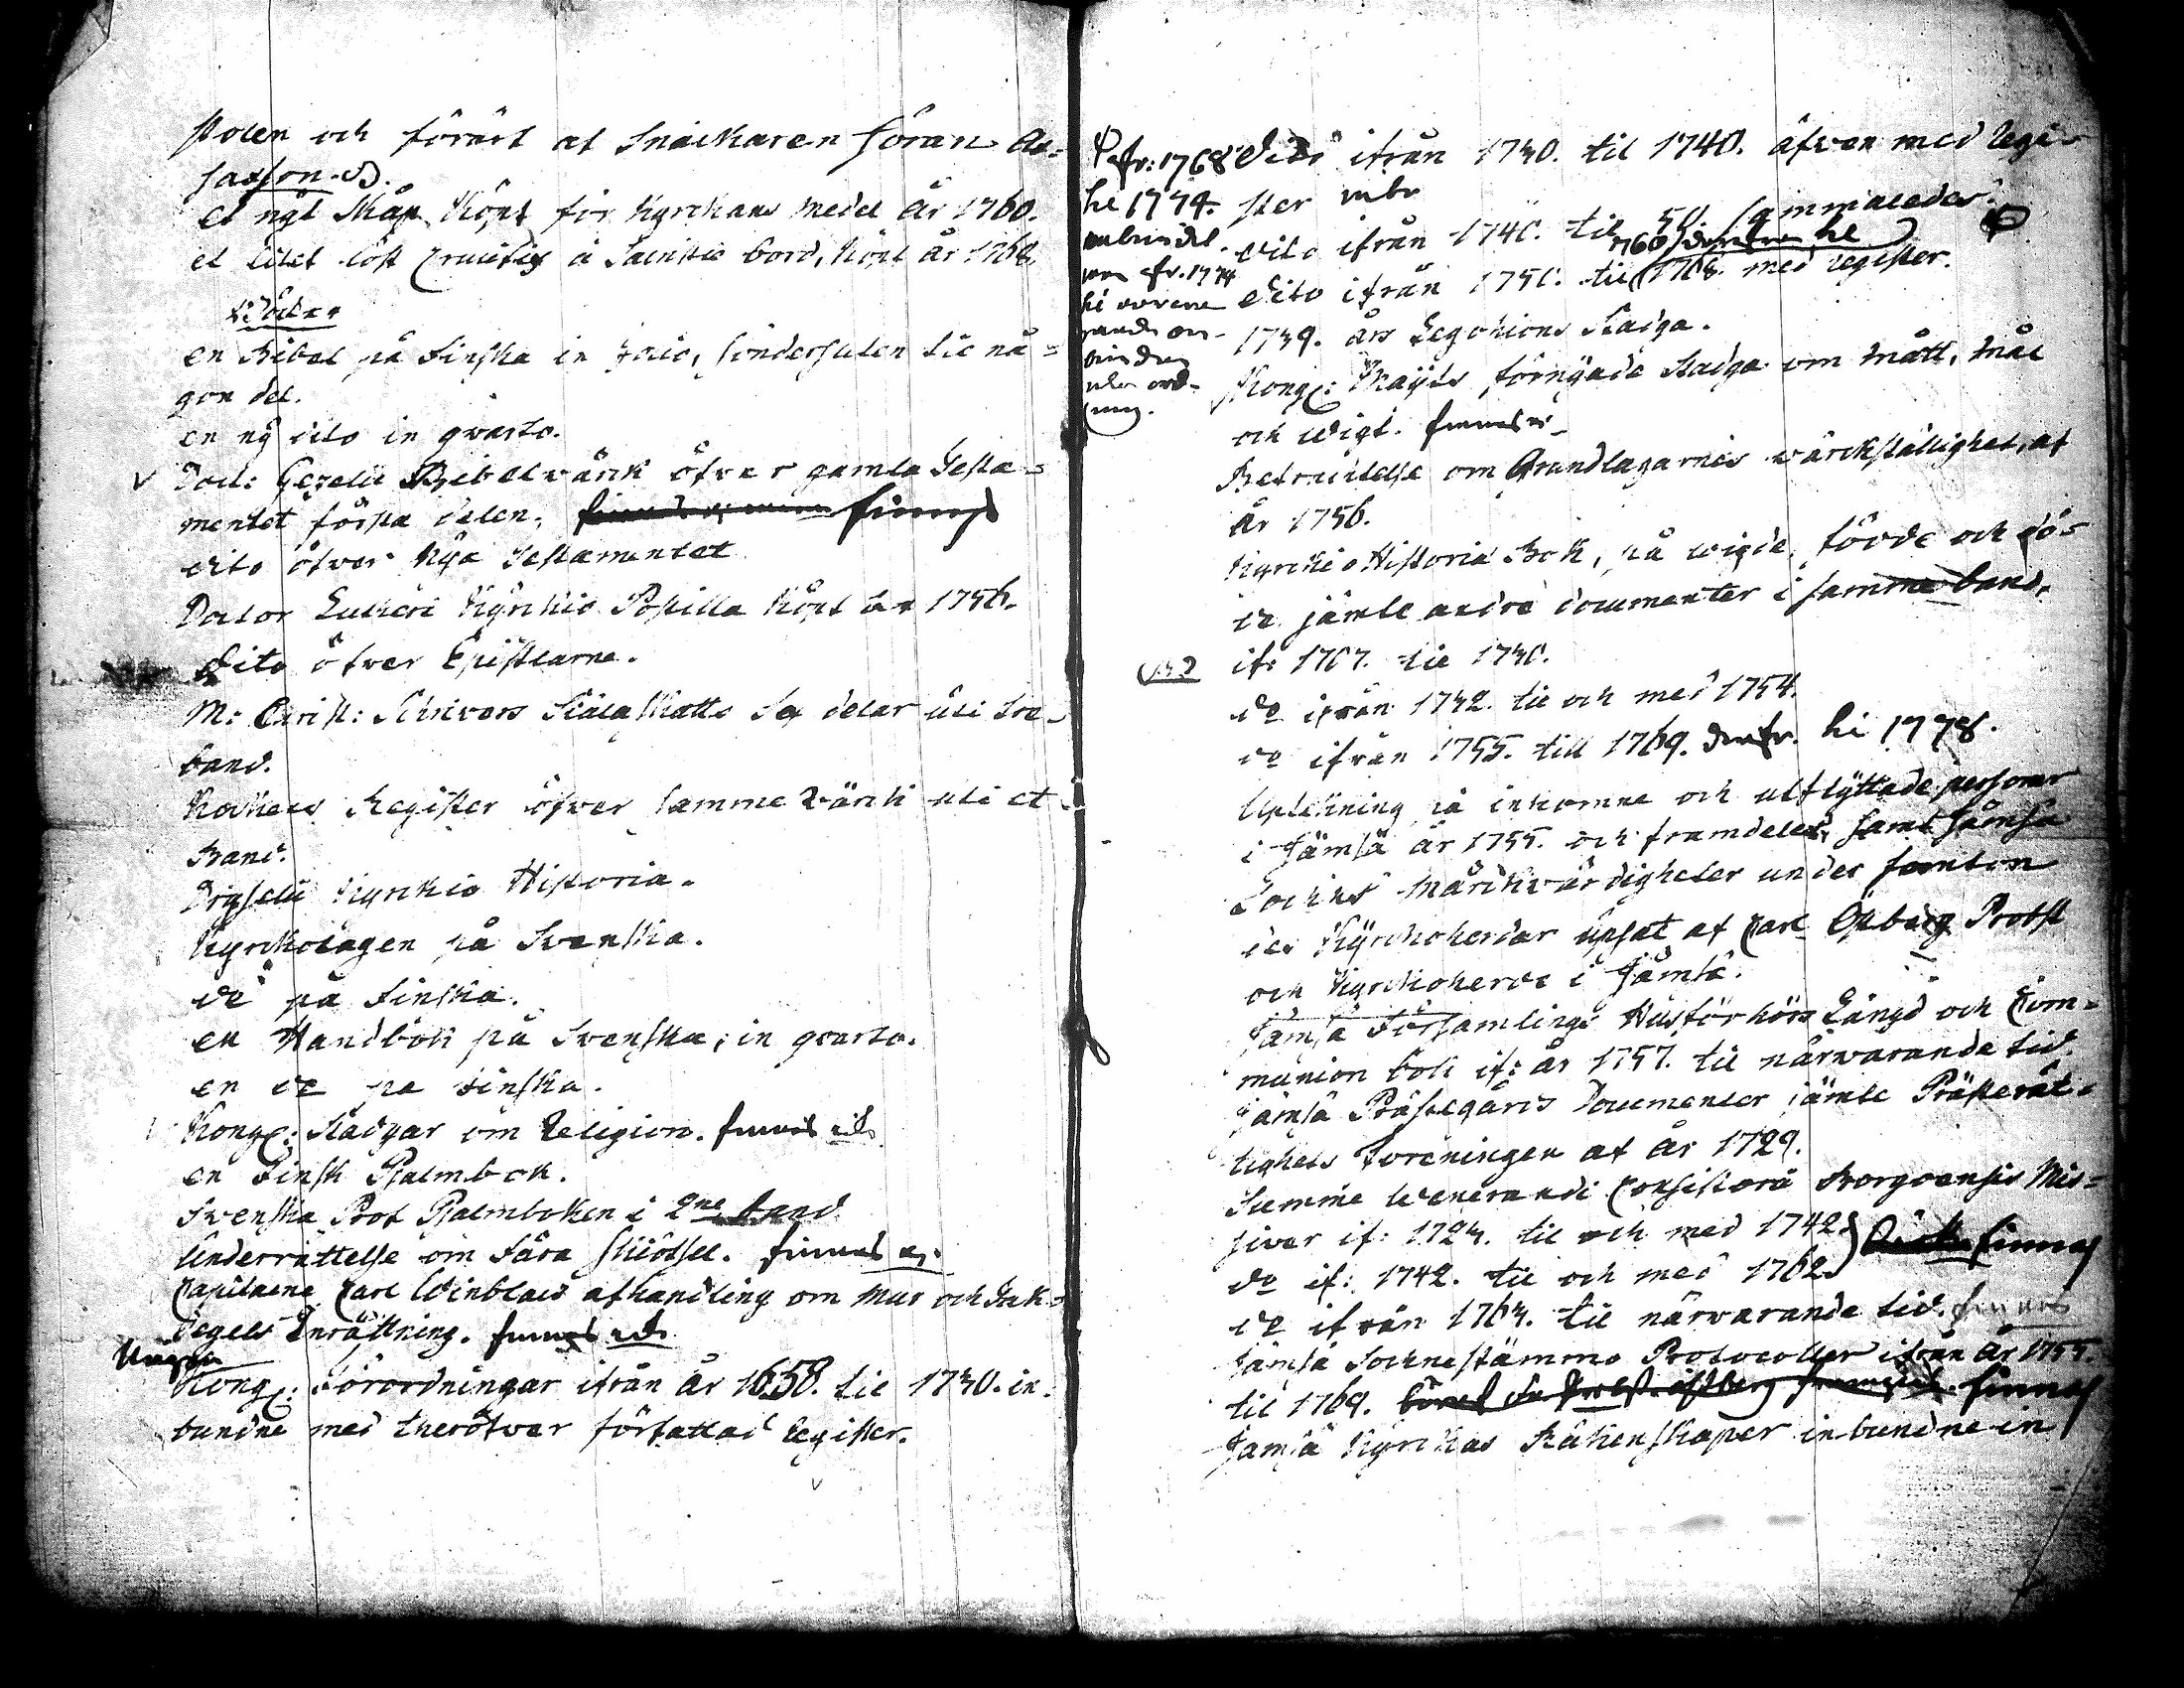 stolen och förärt af Snickaren Göran Aa=
saksson.
et nytt Skåp Köpt för Kyrckans medel År 1760.
et litet löst Crucifix å Sacristie bord, Köpt År 1768.
Böcker
en Bibel på Finska in Folio, söndersliten til nå=
gon del.
en ny dito in qvarto.
Doct: Gezelii Bibelwärk öfver gamla Testa=
mentet första delen, finnes
dito öfver Nya Testamentet
Doctor Lutheri Kyrckio Postilla Köpt År 1756.
Dito öfver Epistlarne.
M: Christ: Schrivers Siälaskatts Sex delar uti tre
band.
Kockens Register öfver samme wärck uti et
Band.
Dryselii Kyrckio Historia.
Kyrckolagen på Svenska.
do på Finska.
en Handbok på Svenska, in qvarto.
en do på Finska.
Kongl: Stadgar om Religion. finnes ei
en Finsk Psalmbok.
Svenska Prof Psalmboken i 2ne band
Underrättelse om Fåra skiötsel. finnes ei
Capitaene Carl Winblads afhandling om Mur och Tak=
tegels Inrättning. finnes ei
Någre
Kongl: Förordningar ifrån År 1658. til 1730. in=
bundne med theröfver författad Register.
fr: 1768
til 1774.
inbundet.
fr. 1774
Dito ifrån 1730. til 1740. äfven med Regi=
ster
dito ifrån 1740. til 50. sammaledes.
dito ifrån 1750. til 1768. med register.
1739. års Legohions Stadga.
Kongl: Mayts förnyade Stadga om Mått, Mål
och Wigt. finnes ei
Betraktelse om Grundlagarnes wärckställighet, af
År 1756.
Kyrckio Historiæ Bok, på wigde, födde och dö=
da jämte andre documenter i samma band,
ifr 1707. til 1730.
do ifrån 1732. til och med 1754.
do ifrån 1755. till 1769. til 1778.
Uptekning på inkomne och utflyttade personer
i Jämsä år 1755. och framdeles, samt Jämsä
Sockns Märckvärdigheter under
des Kyrckoherdar upsat af Carl Ostberg Probst
och Kyrckoherde i Jämsä.
Jämsä Församlings Husförhörs Längd och Com=
munion bok if: år 1757. til närwarande tid.
Jämsä Prästegårds Documenter jämte Prästerät=
tighets Föreningen af År 1729.
Summe Wenerandi Consistorii Borgoensis Mis=
siver if: 1723. til och med 1742.
do if: 1742. til och med 1762. finnes
do ifrån 1763. til närwarande tid. finnes
Jämsä Sockne stämmo Protocoller ifrån År 1755.
til 1769. finnes
Jämsä Kyrckas Räkenskaper inbundne in